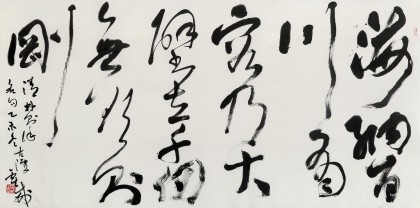 海納百
川有
容乃大
壁立千仞
無欲則
剛
清林則徐
名句乙未冬